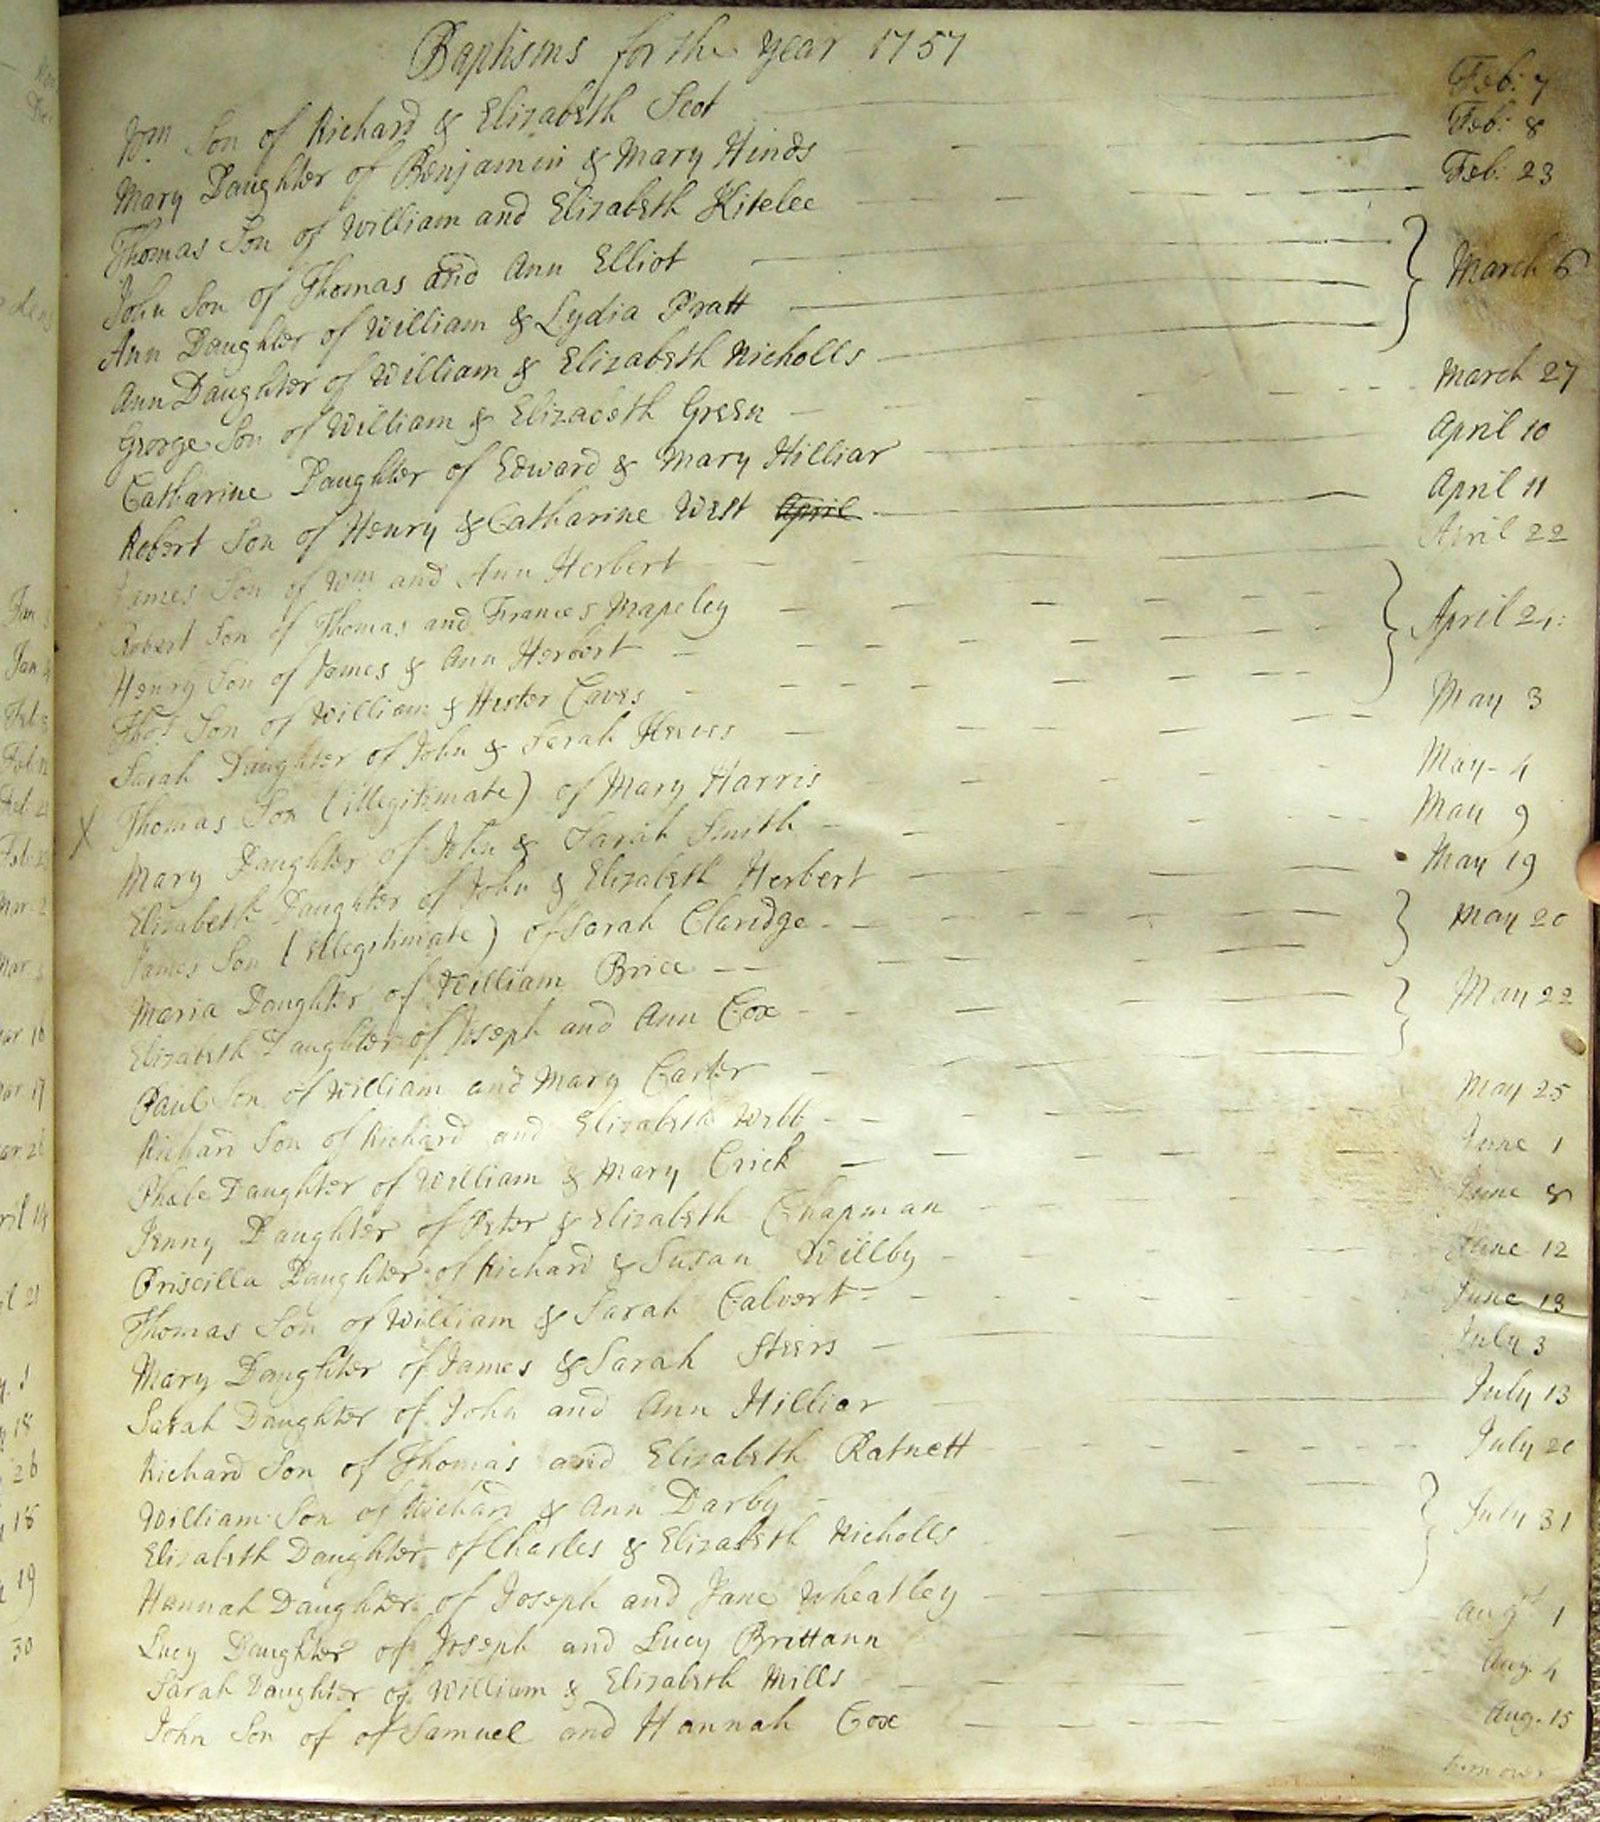 Baptisms for the Year 1757
Wm Son of Richard & Elizabeth Scot Feb: 7
Mary Daughter of Benjamin & Mary Hinds Feb: 8
Thomas Son of William and Elizabeth Kitelee Feb: 23
John Son of Thomas and Ann Elliot
Ann Daughter of William & Lydia Pratt March 6
Ann Daughter of William & Elizabeth Nicholls
George Son of William & Elizabeth Green March 27
Catharine Daughter of Edward & Mary Hilliar April 10
Robert Son of Henry & Catharine West April April 11
James Son of Wm and Ann Herbert April 22
Robert Son of Thomas and Frances Mapeley
Henry Son of James & Ann Herbert April 24:
Thos Son of William & Hester Caves
Sarah Daughter of John & Sarah Heeves May 3
X Thomas Son (illegitimate) of Mary Harris May - 4
Mary Daughter of John & Sarah Smith May 9
Elizabeth Daughter of John & Elizabeth Herbert May 19
James Son (illegitimate) of Sarah Claridge
Maria Daughter of William Brice May 20
Elizabeth Daughter of Joseph and Ann Cox
Paul Son of William and Mary Carter May 22
Richard Son of Richard and Elizabeth Webb May 25
Phebe Daughter of William & Mary Crick June 1
Jenny Daughter of Peter & Elizabeth Chapman June 8
Priscilla Daughter of Richard & Susan Willby June 12
Thomas Son of William & Sarah Calvert June 13
Mary Daughter of James & Sarah Steers July 3
Sarah Daughter of John and Ann Hilliar July 13
Richard Son of Thomas and Elizabeth Ratnett July 20
William Son of Richard & Ann Darby
Elizabeth Daughter of Charles & Elizabeth Nicholls July 31
Hannah Daughter of Joseph and Jane Wheatley
Lucy Daughter of Joseph and Lucy Brittann Augst 1
Sarah Daughter of William & Elizabeth Mills Aug. 4
John Son of of Samuel and Hannah Cox Aug. 15
turn over